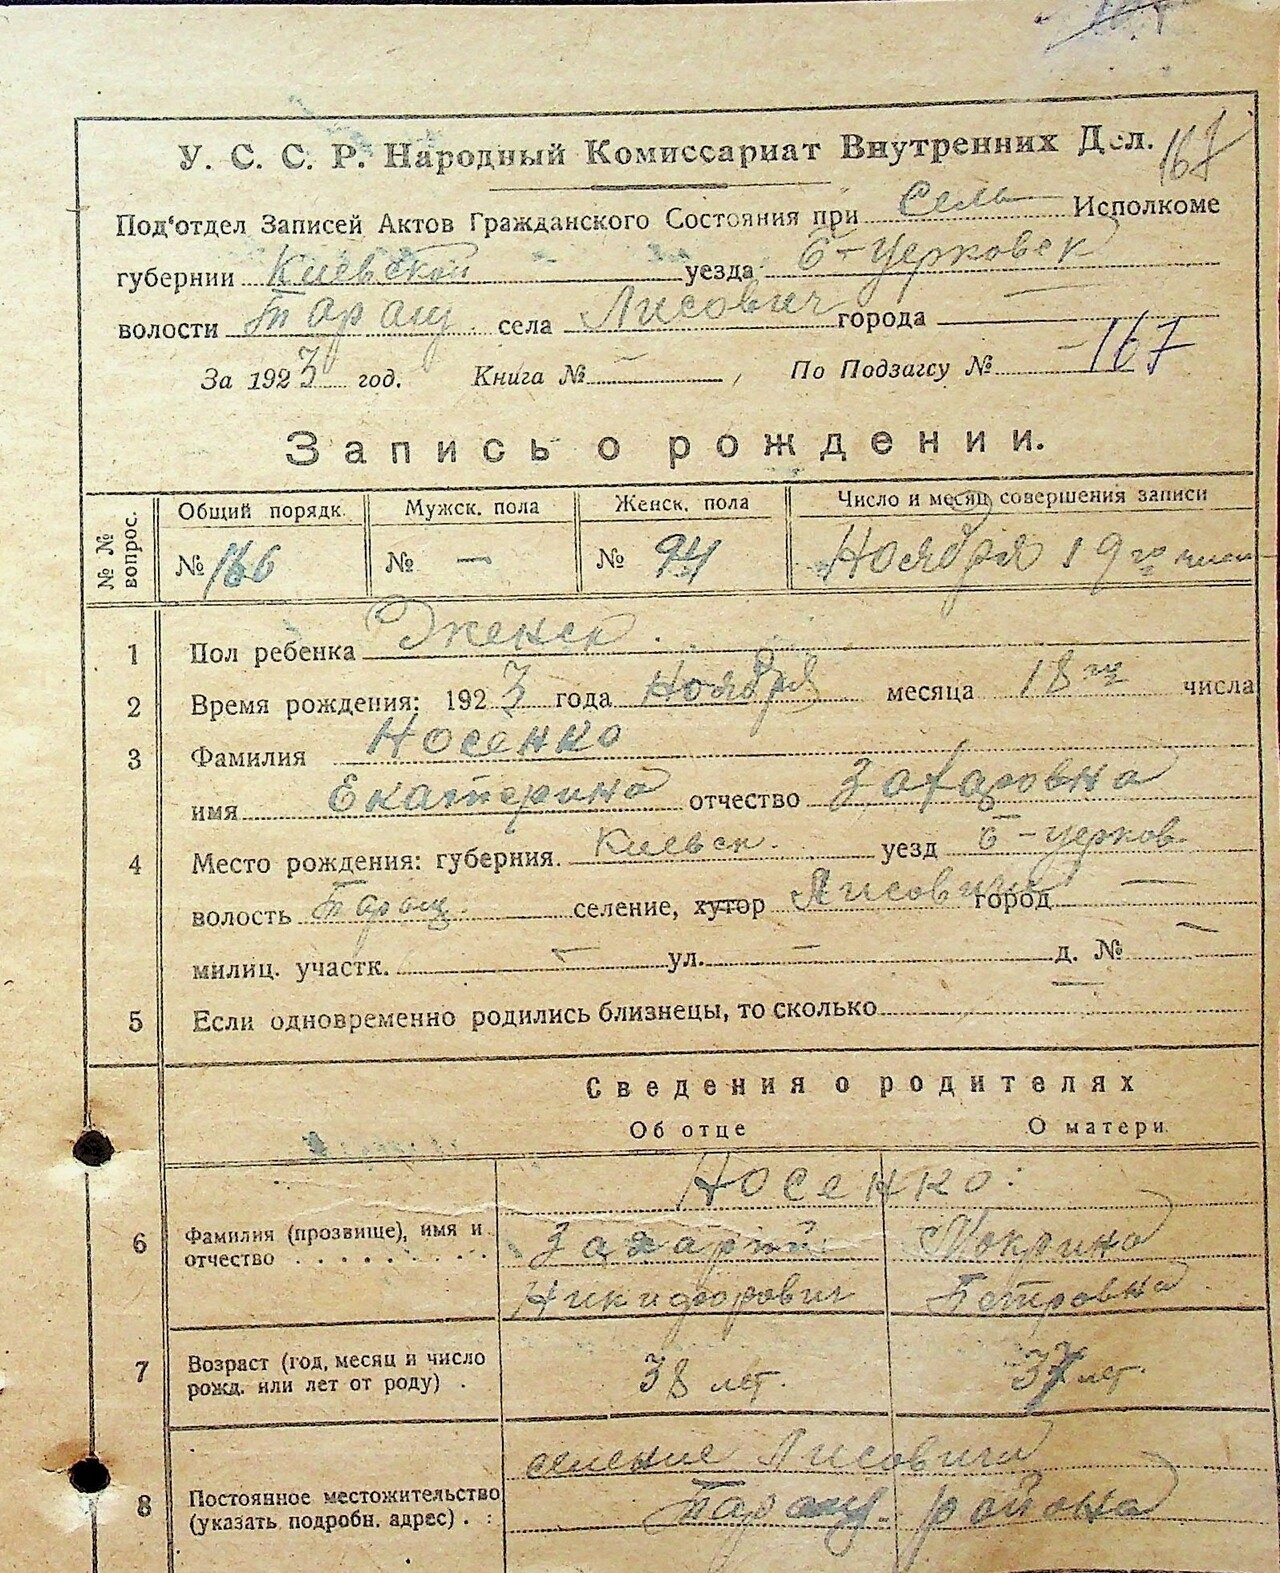 У. С. С. Р. Народный Комиссариат Внутренних Дел.
Под'отдел Записей Актов Гражданского Состояния при Сель Исполкоме
губернии Киевской уезда Б-Церковск
волости Таращ. села Лисович города —
За 1923 год. Книга № — , По Подзагсу № 167
Запись о рождении.
№ № вопрос.
Общий порядк. Мужск. пола Женск. пола Число и месяц совершения записи
№ 166 № — № 94 Ноября 19го числа
1 Пол ребенка Женск.
2 Время рождения: 1923 года Ноября месяца 18го числа
3 Фамилия Носенко
имя Екатерина отчество Захаровна
4 Место рождения: губерния. Киевск. уезд Б-Церков.
волость Таращ. селение, хутор Лисовичи город —
милиц. участк. — ул. — д. № —
5 Если одновременно родились близнецы, то сколько —
Сведения о родителях
Об отце О матери
Носенко:
6 Фамилия (прозвище), имя и отчество . . . . . . . .
Захарий Мокрина
Никифорович Петровна
7 Возраст (год, месяц и число рожд. или лет от роду) .
38 лет. 37 лет.
селение Лисовичи
8 Постоянное местожительство (указать подробн. адрес) . :
Таращ. района